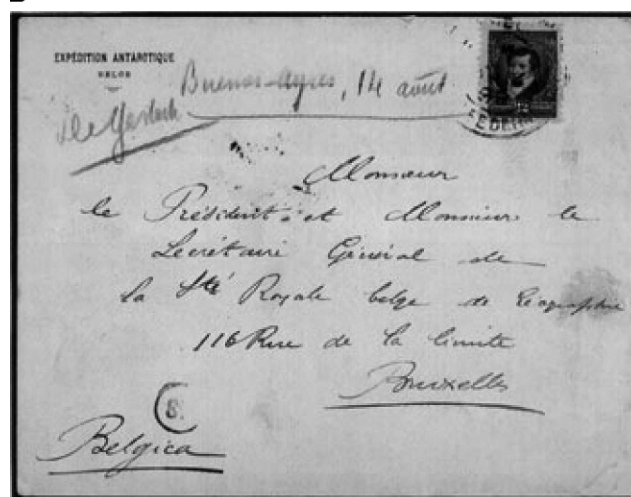 EXPÉDITION ANTARCTIQUE
BELGE
Buenos-Ayres, 14 août
de Gerlache
Monsieur
le Président et Monsieur le
Secrétaire Général de
la Sté Royale belge de Géographie
116 Rue de la limite
Bruxelles
Belgica